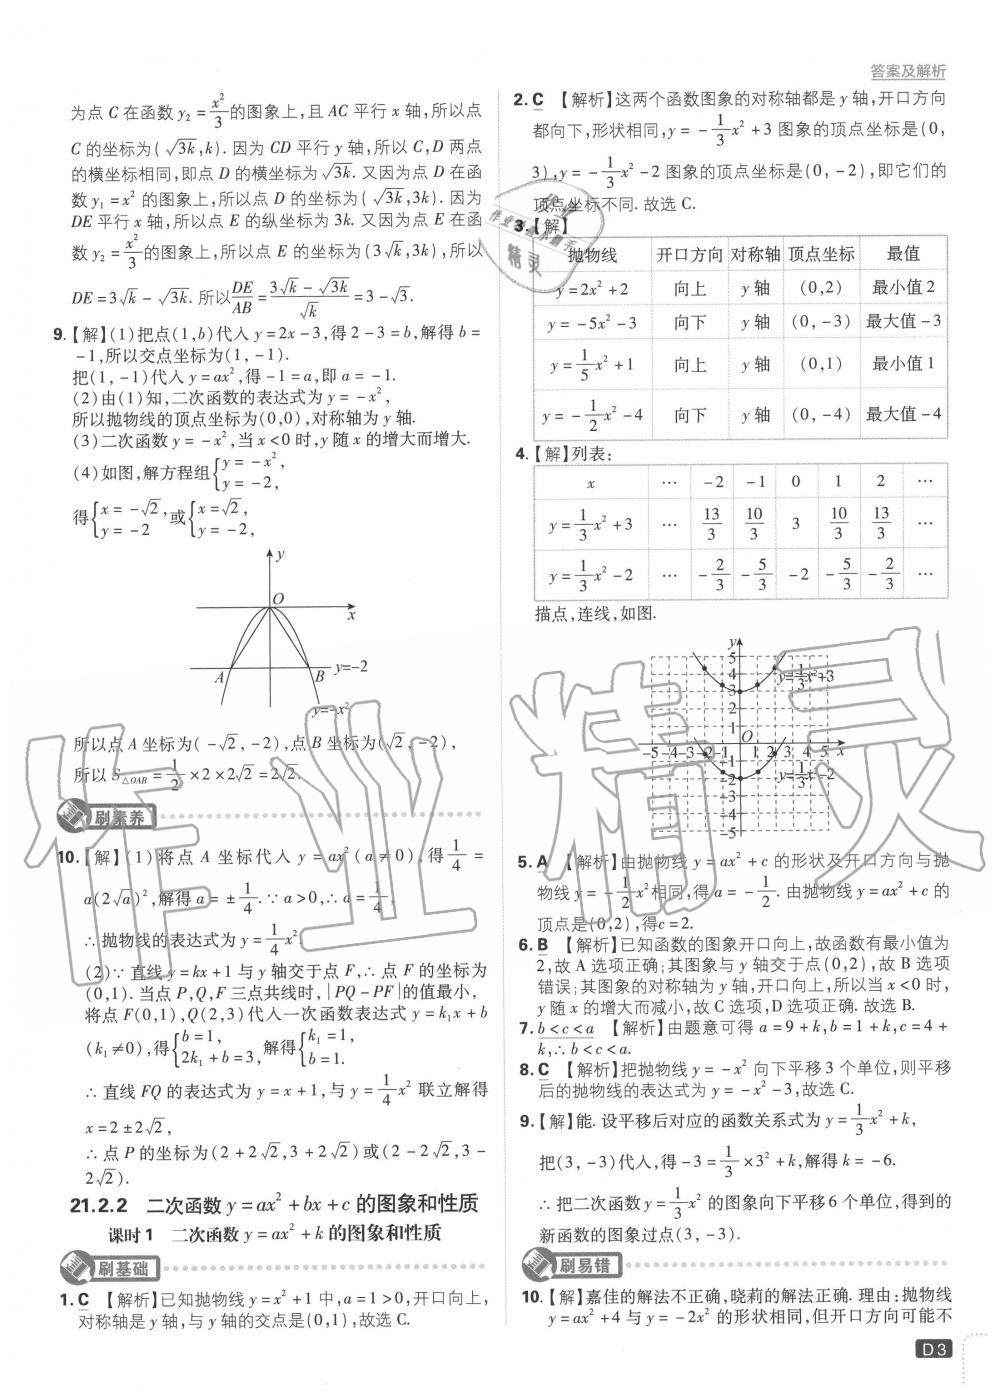 答案及解析
为点 C 在函数 y₂ = x²/3 的图象上,且 AC 平行 x 轴,所以点
C 的坐标为(√3k,k). 因为 CD 平行 y 轴,所以 C,D 两点
的横坐标相同,即点 D 的横坐标为 √3k. 又因为点 D 在函
数 y₁ = x² 的图象上,所以点 D 的坐标为(√3k,3k). 因为
DE 平行 x 轴,所以点 E 的纵坐标为 3k. 又因为点 E 在函
数 y₂ = x²/3 的图象上,所以点 E 的坐标为(3√k,3k),所以
DE = 3√k - √3k. 所以 DE/AB = (3√k - √3k)/√k = 3 - √3.
9. 【解】(1)把点(1,b)代入 y = 2x - 3,得 2 - 3 = b,解得 b =
-1,所以交点坐标为(1, -1).
把(1, -1)代入 y = ax²,得 -1 = a,即 a = -1.
(2)由(1)知,二次函数的表达式为 y = -x²,
所以抛物线的顶点坐标为(0,0),对称轴为 y 轴.
(3)二次函数 y = -x²,当 x < 0 时,y 随 x 的增大而增大.
(4)如图,解方程组 { y = -x², y = -2,
得 { x = -√2, y = -2 或 { x = √2, y = -2,
y
O
x
A
B
y=-2
y=-x²
所以点 A 坐标为(-√2, -2),点 B 坐标为(√2, -2),
所以 S△OAB = 1/2 × 2 × 2√2 = 2√2.
刷素养
10. 【解】(1)将点 A 坐标代入 y = ax²(a≠0),得 1/4 =
a(2√a)²,解得 a = ±1/4. ∵ a > 0,∴ a = 1/4.
∴ 抛物线的表达式为 y = 1/4 x².
(2)∵ 直线 y = kx + 1 与 y 轴交于点 F,∴ 点 F 的坐标为
(0,1). 当点 P,Q,F 三点共线时,|PQ - PF|的值最小,
将点 F(0,1),Q(2,3)代入一次函数表达式 y = k₁x + b
(k₁≠0),得 { b = 1, 2k₁ + b = 3, 解得 { k₁ = 1, b = 1.
∴ 直线 FQ 的表达式为 y = x + 1,与 y = 1/4 x² 联立解得
x = 2 ± 2√2,
∴ 点 P 的坐标为(2 + 2√2,3 + 2√2)或(2 - 2√2,3 -
2√2).
21.2.2 二次函数 y = ax² + bx + c 的图象和性质
课时1 二次函数 y = ax² + k 的图象和性质
刷基础
1. C 【解析】已知抛物线 y = x² + 1 中,a = 1 > 0,开口向上,
对称轴是 y 轴,与 y 轴的交点是(0,1),故选 C.
2. C 【解析】这两个函数图象的对称轴都是 y 轴,开口方向
都向下,形状相同,y = -1/3 x² + 3 图象的顶点坐标是(0,
3),y = -1/3 x² - 2 图象的顶点坐标是(0, -2),即它们的
顶点坐标不同. 故选 C.
3. 【解】
抛物线 开口方向 对称轴 顶点坐标 最值
y = 2x² + 2 向上 y 轴 (0,2) 最小值 2
y = -5x² - 3 向下 y 轴 (0, -3) 最大值 -3
y = 1/5 x² + 1 向上 y 轴 (0,1) 最小值 1
y = -1/2 x² - 4 向下 y 轴 (0, -4) 最大值 -4
4. 【解】列表:
x … -2 -1 0 1 2 …
y = 1/3 x² + 3 … 13/3 10/3 3 10/3 13/3 …
y = 1/3 x² - 2 … -2/3 -5/3 -2 -5/3 -2/3 …
描点,连线,如图.
y
5
4
3
2
1
O
-5 -4 -3 -2 -1 1 2 3 4 5 x
-1
-2
-3
-4
-5
y=1/3 x²+3
y=1/3 x²-2
5. A 【解析】由抛物线 y = ax² + c 的形状及开口方向与抛
物线 y = -1/2 x² 相同,得 a = -1/2. 由抛物线 y = ax² + c 的
顶点是(0,2),得 c = 2.
6. B 【解析】已知函数的图象开口向上,故函数有最小值为
2,故 A 选项正确;其图象与 y 轴交于点(0,2),故 B 选项
错误;其图象的对称轴为 y 轴,开口向上,所以当 x < 0 时,
y 随 x 的增大而减小,故 C 选项,D 选项正确. 故选 B.
7. b < c < a 【解析】由题意可得 a = 9 + k,b = 1 + k,c = 4 +
k,∴ b < c < a.
8. C 【解析】把抛物线 y = -x² 向下平移 3 个单位,则平移
后的抛物线的表达式为 y = -x² - 3,故选 C.
9. 【解】能. 设平移后对应的函数关系式为 y = 1/3 x² + k,
把(3, -3)代入,得 -3 = 1/3 × 3² + k,解得 k = -6.
∴ 把二次函数 y = 1/3 x² 的图象向下平移 6 个单位,得到的
新函数的图象过点(3, -3).
刷易错
10. 【解】嘉佳的解法不正确,晓莉的解法正确. 理由:抛物线
y = ax² + 4 与 y = -2x² 的形状相同,但开口方向可能不
D3
作业精灵
精灵